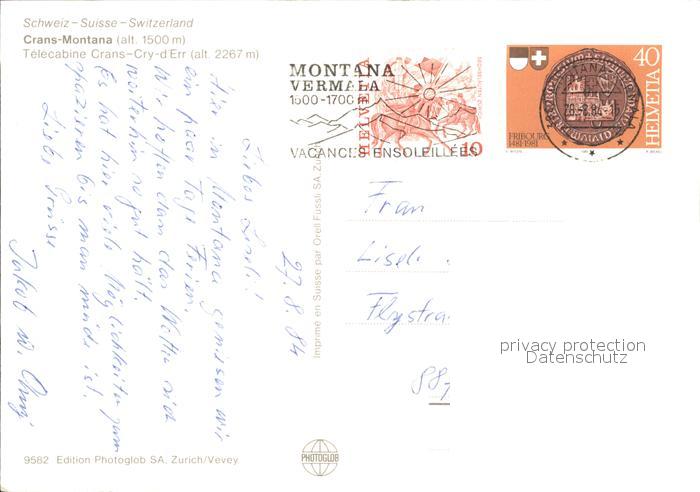 Schweiz – Suisse – Switzerland
Crans-Montana (alt. 1500 m)
Télécabine Crans–Cry-d'Err (alt. 2267 m)
MONTANA
VERMALA
1500-1700
VACANCES ENSOLEILLÉES
HELVETIA
10
40
HELVETIA
FRIBOURG
1481-1981
27.8.84
Liebes Liseli!
Hier in Montana geniessen wir
ein paar Tage Ferien.
Wir hoffen dass das Wetter sich
weiterhin so gut hält.
Es hat hier viele Möglichkeiten zum
spazieren bis man müde ist.
Liebe Grüsse
Jakob W.
Frau
Liseli
Flystra
887
Imprimé en Suisse par Orell Füssli SA, Zurich
privacy protection
Datenschutz
9582 Edition Photoglob SA, Zurich/Vevey
PHOTOGLOB